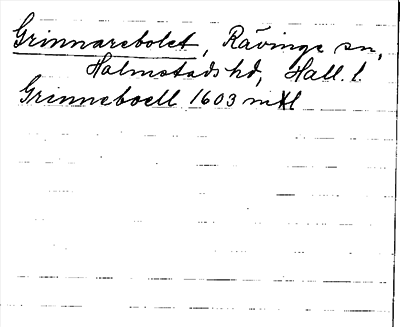 Grinnarebolet, Rävinge sn,
Halmstads hd, Hall. l.
Grinneboell 1603